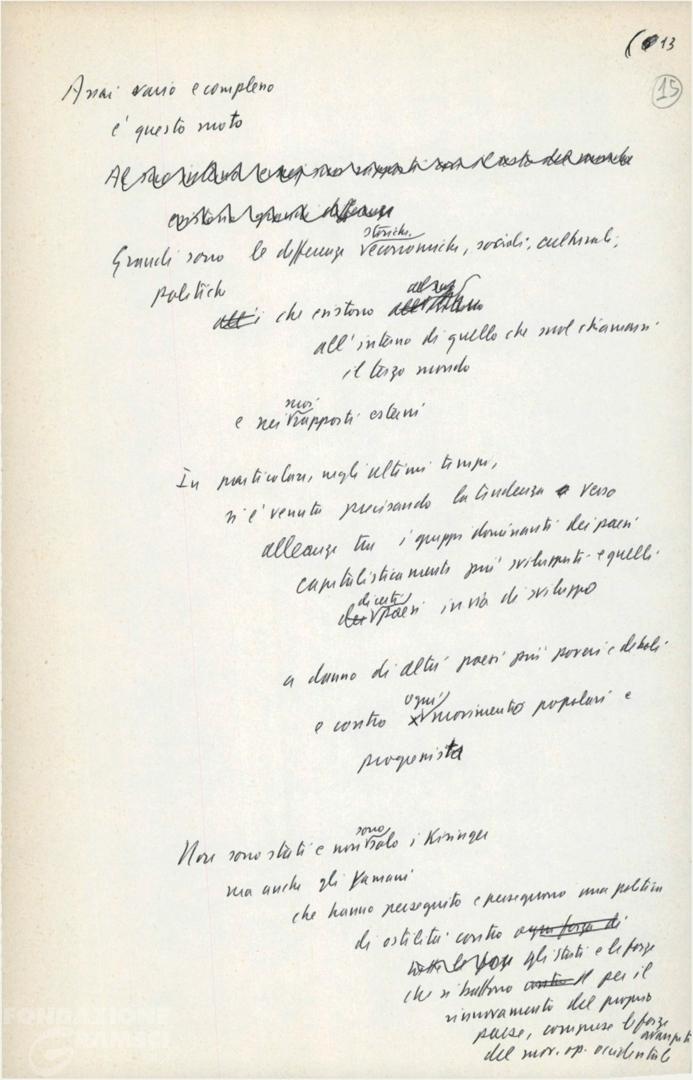 13
15
Assai vario e complesso
è questo moto
Grandi sono le differenze storiche, economiche, sociali, culturali,
politiche
che esistono
all'interno di quello che suol chiamarsi
il terzo mondo
e nei suoi rapporti esterni
In particolare, negli ultimi tempi,
si è venuta precisando la tendenza verso
alleanze tra i gruppi dominanti dei paesi
capitalisticamente più sviluppati e quelli
di certi paesi in via di sviluppo
a danno di altri paesi più poveri e deboli
e contro ogni movimento popolare e
progressista
Non sono stati e non sono solo i Kissinger
ma anche gli Yamani
che hanno perseguito e perseguono una politica
di ostilità contro ogni forza di
tutte le forze gli stati e le forze
che si battono per il
rinnovamento del proprio
paese, comprese le forze avanzate
del mov. op. occidentale
FONDAZIONE
GRAMSCI